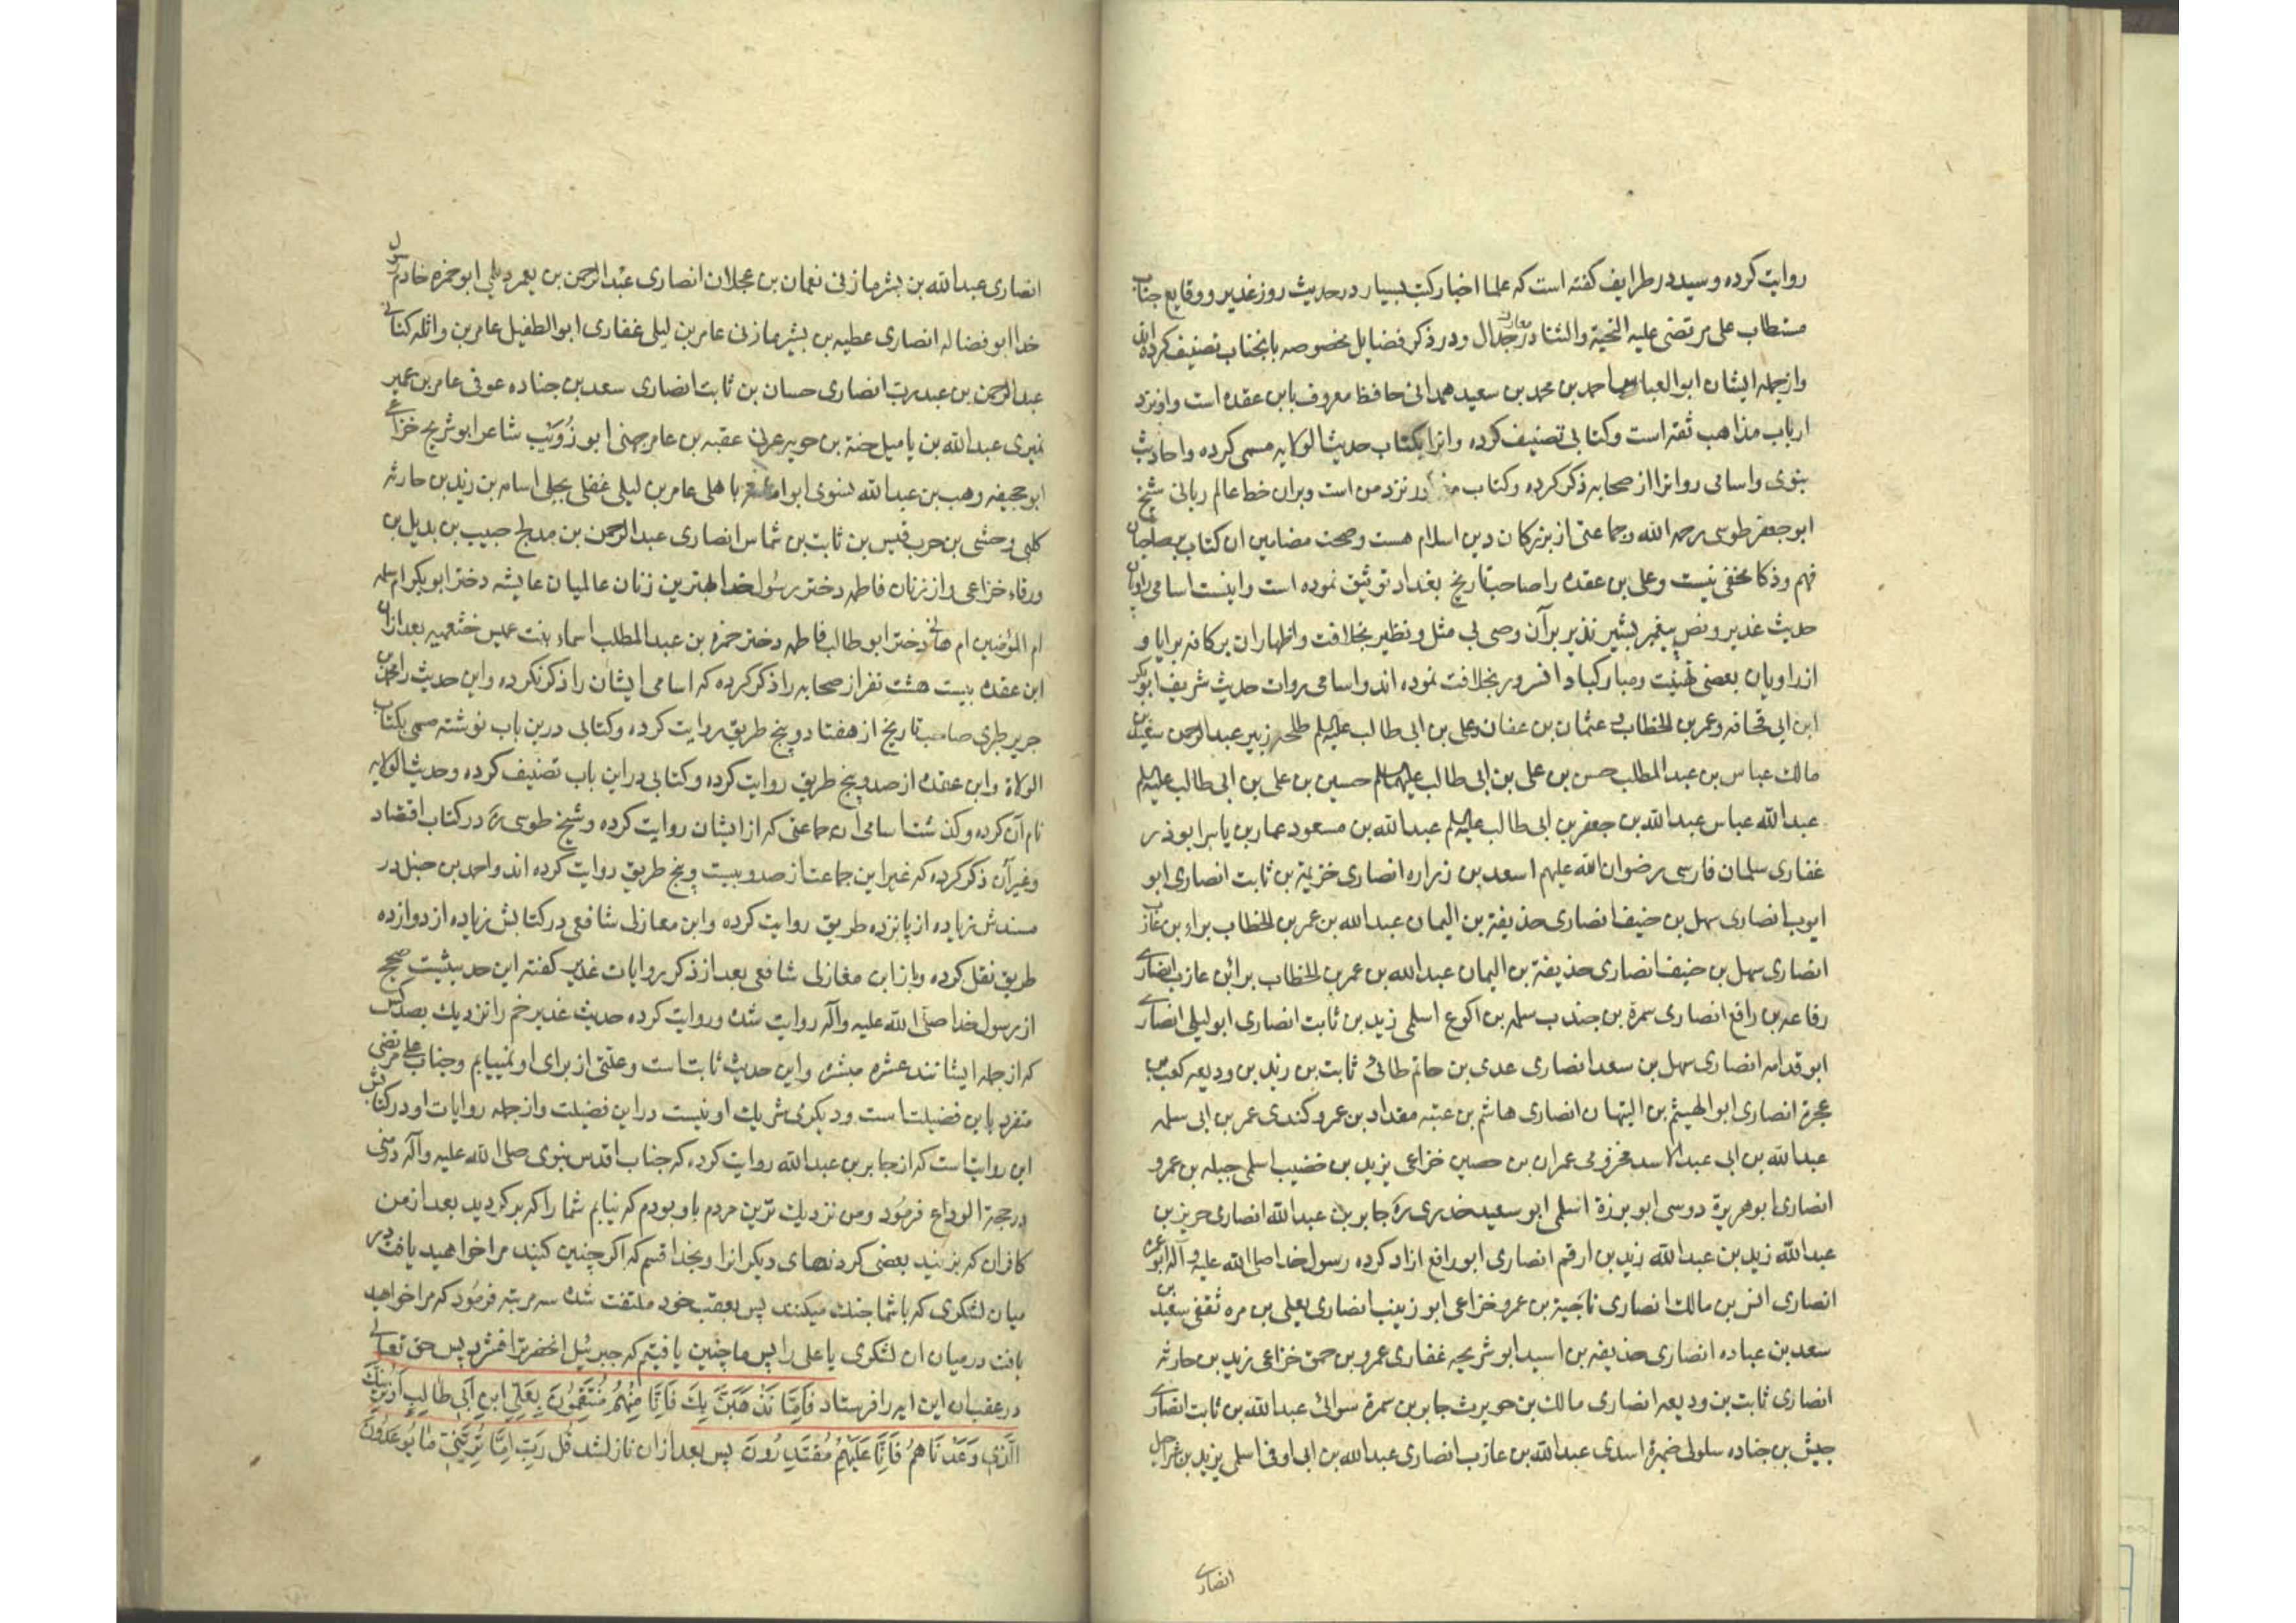 روایت کرده و سید در طرایف کفته است که علما اخبار کتب بسیار در حدیث روز غدیر و وقایع جناب
مستطاب علی مرتضی علیه التحیة والثنا در معارک جدال و در ذکر فضایل مخصوصه بانجناب تصنیف کرده اند
و از جمله ایشان ابوالعباس احمد بن محمد بن سعید همدانی حافظ معروف بابن عقده است و او نزد
ارباب مذاهب ثقه است و کتابی تصنیف کرده و انرا بکتاب حدیث الولایه مسمی کرده و احادیث
نبوی و اسامی روات را از صحابه ذکر کرده و کتاب نزد من است و بران خط عالم ربانی شیخ
ابو جعفر طوسی رحمه الله و جماعتی از بزرکان دین اسلام هست و صحت مضامین ان کتاب بر صاحبان
فهم و ذکا مخفی نیست و علی بن عقده را صاحب تاریخ بغداد توثیق نموده است و اینست اسامی راویان
حدیث غدیر و نص پیغمبر بشیر نذیر بر آن وصی بی مثل و نظیر بخلافت و اظهار ان بر کافه برایا و
از راویان بعضی تهنیت و مبارکباد انسرور بخلافت نموده اند و اسامی روات حدیث شریف ابوبکر
ابن ابی قحافه و عمر بن الخطاب و عثمان بن عفان و علی بن ابی طالب علیه السلم طلحه زبیر عبدالرحمن سعید بن
مالک عباس بن عبدالمطلب حسن بن علی بن ابی طالب علیهما السلم حسین بن علی بن ابی طالب علیه السلم
عبدالله عباس عبدالله بن جعفر بن ابی طالب علیه السلم عبدالله بن مسعود عمار بن یاسر ابوذر
غفاری سلمان فارسی رضوان الله علیهم اسعد بن زراره انصاری خزیمة بن ثابت انصاری ابو
ایوب انصاری سهل بن حنیف انصاری حذیفة بن الیمان عبدالله بن عمر بن الخطاب براء بن عازب
انصاری سهل بن حنیف انصاری حذیفة بن الیمان عبدالله بن عمر بن الخطاب برائن عازب انصاری
رفاعه بن رافع انصاری سمرة بن جندب سلمه بن اکوع اسلمی زید بن ثابت انصاری ابو لیلی انصاری
ابو قدامه انصاری سهل بن سعد انصاری عدی بن حاتم طائی ثابت بن زید بن ودیعه کعب بن
عجرة انصاری ابو الهیثم بن التیهان انصاری هاشم بن عتبه مقداد بن عمرو کندی عمر بن ابی سلمه
عبدالله بن ابی عبدالاسد مخزومی عمران بن حصین خزاعی یزید بن خضیب اسلمی جبله بن عمرو
انصاری ابو هریرة دوسی ابو برزة اسلمی ابو سعید خدری ره جابر بن عبدالله انصاری حریز بن
عبدالله زید بن عبدالله زید بن ارقم انصاری ابو رافع ازاد کرده رسول خدا صلی الله علیه و آله ابو عمره
انصاری انس بن مالک انصاری ناجیة بن عمرو خزاعی ابو زینب انصاری یعلی بن مره ثقفی سعید بن
سعد بن عباده انصاری حذیفه بن اسید ابو شریحه غفاری عمرو بن حمق خزاعی زید بن حارثه
انصاری ثابت بن ودیعه انصاری مالک بن حویرث جابر بن سمرة سوائی عبدالله بن ثابت انصاری
جیش بن جناده سلولی ضمرة اسدی عبدالله بن عازب انصاری عبدالله بن ابی اوفی اسلمی یزید بن شراحیل
انصاری
انصاری عبدالله بن بشر مازنی نعمان بن عجلان انصاری عبدالرحمن بن یعمر دیلی ابو حمزه خادم رسول
خدا ابو فضاله انصاری عطیه بن بشیر مازنی عامر بن لیلی غفاری ابو الطفیل عامر بن واثله کنانی
عبدالرحمن بن عبدرب انصاری حسان بن ثابت انصاری سعد بن جناده عوفی عامر بن عمیر
نمیری عبدالله بن یامیل حنة بن حویه عرنی عقبه بن عامر جهنی ابو ذؤیب شاعر ابو شریح خزاعی
ابو جحیفه وهب بن عبدالله نسوی ابو امامه باهلی عامر بن لیلی غفلی بجلی اسامه بن زید بن حارثه
کلبی وحشی بن حرب قیس بن ثابت بن شماس انصاری عبدالرحمن بن مدلج حبیب بن بدیل بن
ورقاء خزاعی و از زنان فاطمه دختر رسول خدا بهترین زنان عالمیان عایشه دختر ابوبکر ام سلمه
ام المؤمنین ام هانی دختر ابو طالب فاطمه دختر حمزه بن عبدالمطلب اسماء بنت عمیس خثعمیه بعد از ان
ابن عقده بیست هشت نفر از صحابه را ذکر کرده که اسامی ایشان را ذکر نکرده و این حدیث را محمد بن
جریر طبری صاحب تاریخ از هفتاد و پنج طریق روایت کرده و کتابی درین باب نوشته مسمی بکتاب
الولاة و ابن عقده از صد و پنج طریق روایت کرده و کتابی در این باب تصنیف کرده و حدیث الولایه
نام آن کرده و کذشت اسامی ان جماعتی که از ایشان روایت کرده و شیخ طوسی ره در کتاب اقتصاد
و غیر آن ذکر کرده که غیر این جماعت از صد و بیست و پنج طریق روایت کرده اند و احمد بن حنبل در
مسندش زیاده از پانزده طریق روایت کرده و ابن معازلی شافعی در کتابش زیاده از دوازده
طریق نقل کرده و باز ابن مغازلی شافعی بعد از ذکر روایات غدیر کفته این حدیثیست صحیح
از رسول خدا صلی الله علیه و آله روایت شده و روایت کرده حدیث غدیر خم را نزدیک بصد کس
که از جمله ایشانند عشره مبشره و این حدیث ثابت است و علتی از برای او نمییابم و جناب علی مرتضی
متفرد باین فضیلت است و دیکری شریک او نیست در این فضیلت و از جمله روایات او در کتابش
این روایت است که از جابر بن عبدالله روایت کرده که جناب اقدس نبوی صلی الله علیه و آله در منی
در حجة الوداع فرمود و من نزدیک ترین مردم باو بودم که نیابم شما را که برکردید بعد از من
کافران که بزنید بعضی کردنهای دیکر انرا و بخدا قسم که اکر چنین کنید مرا خواهید یافت در
میان لشکری که با شما جنک میکنند پس بعقب خود ملتفت شده سه مرتبه فرمود که مرا خواهید
یافت در میان ان لشکری یا علی را پس ما چنین یافتیم که جبرئیل انحضرترا فشرد پس حق تعالی
در عقب ان این ایه را فرستاد فَاِمّا نَذْهَبَنَّ بِكَ فَاِنّا مِنْهُمْ مُنْتَقِمُونَ بِعَلِیِّ ابنِ اَبی طالِبٍ اَوْ نُرِیَنَّكَ
الَّذِی وَعَدْنَاهُمْ فَاِنّا عَلَیْهِمْ مُقْتَدِرُونَ پس بعد از ان نازل شد قُلْ رَبِّ اِمّا تُرِیَنّی ما یُوعَدُونَ